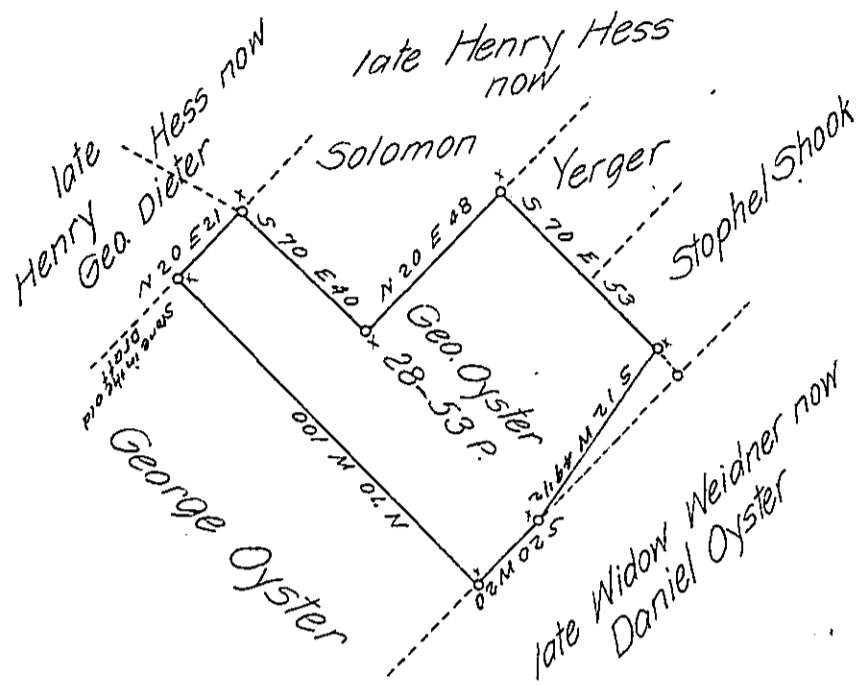 late Henry Hess
now
late
Henry
Hess now
Geo. Dieter
Solomon
Yerger
Stophel Shook
N 20 E 21
S 70 E 40
N 20 E 48
S 70 E 53
Geo. Oyster
28-53 P.
S 12 W 49 1/2
S 20 W 20
N 70 W 100
stone in the old
Draft
George Oyster
late Widow Weidner now
Daniel Oyster